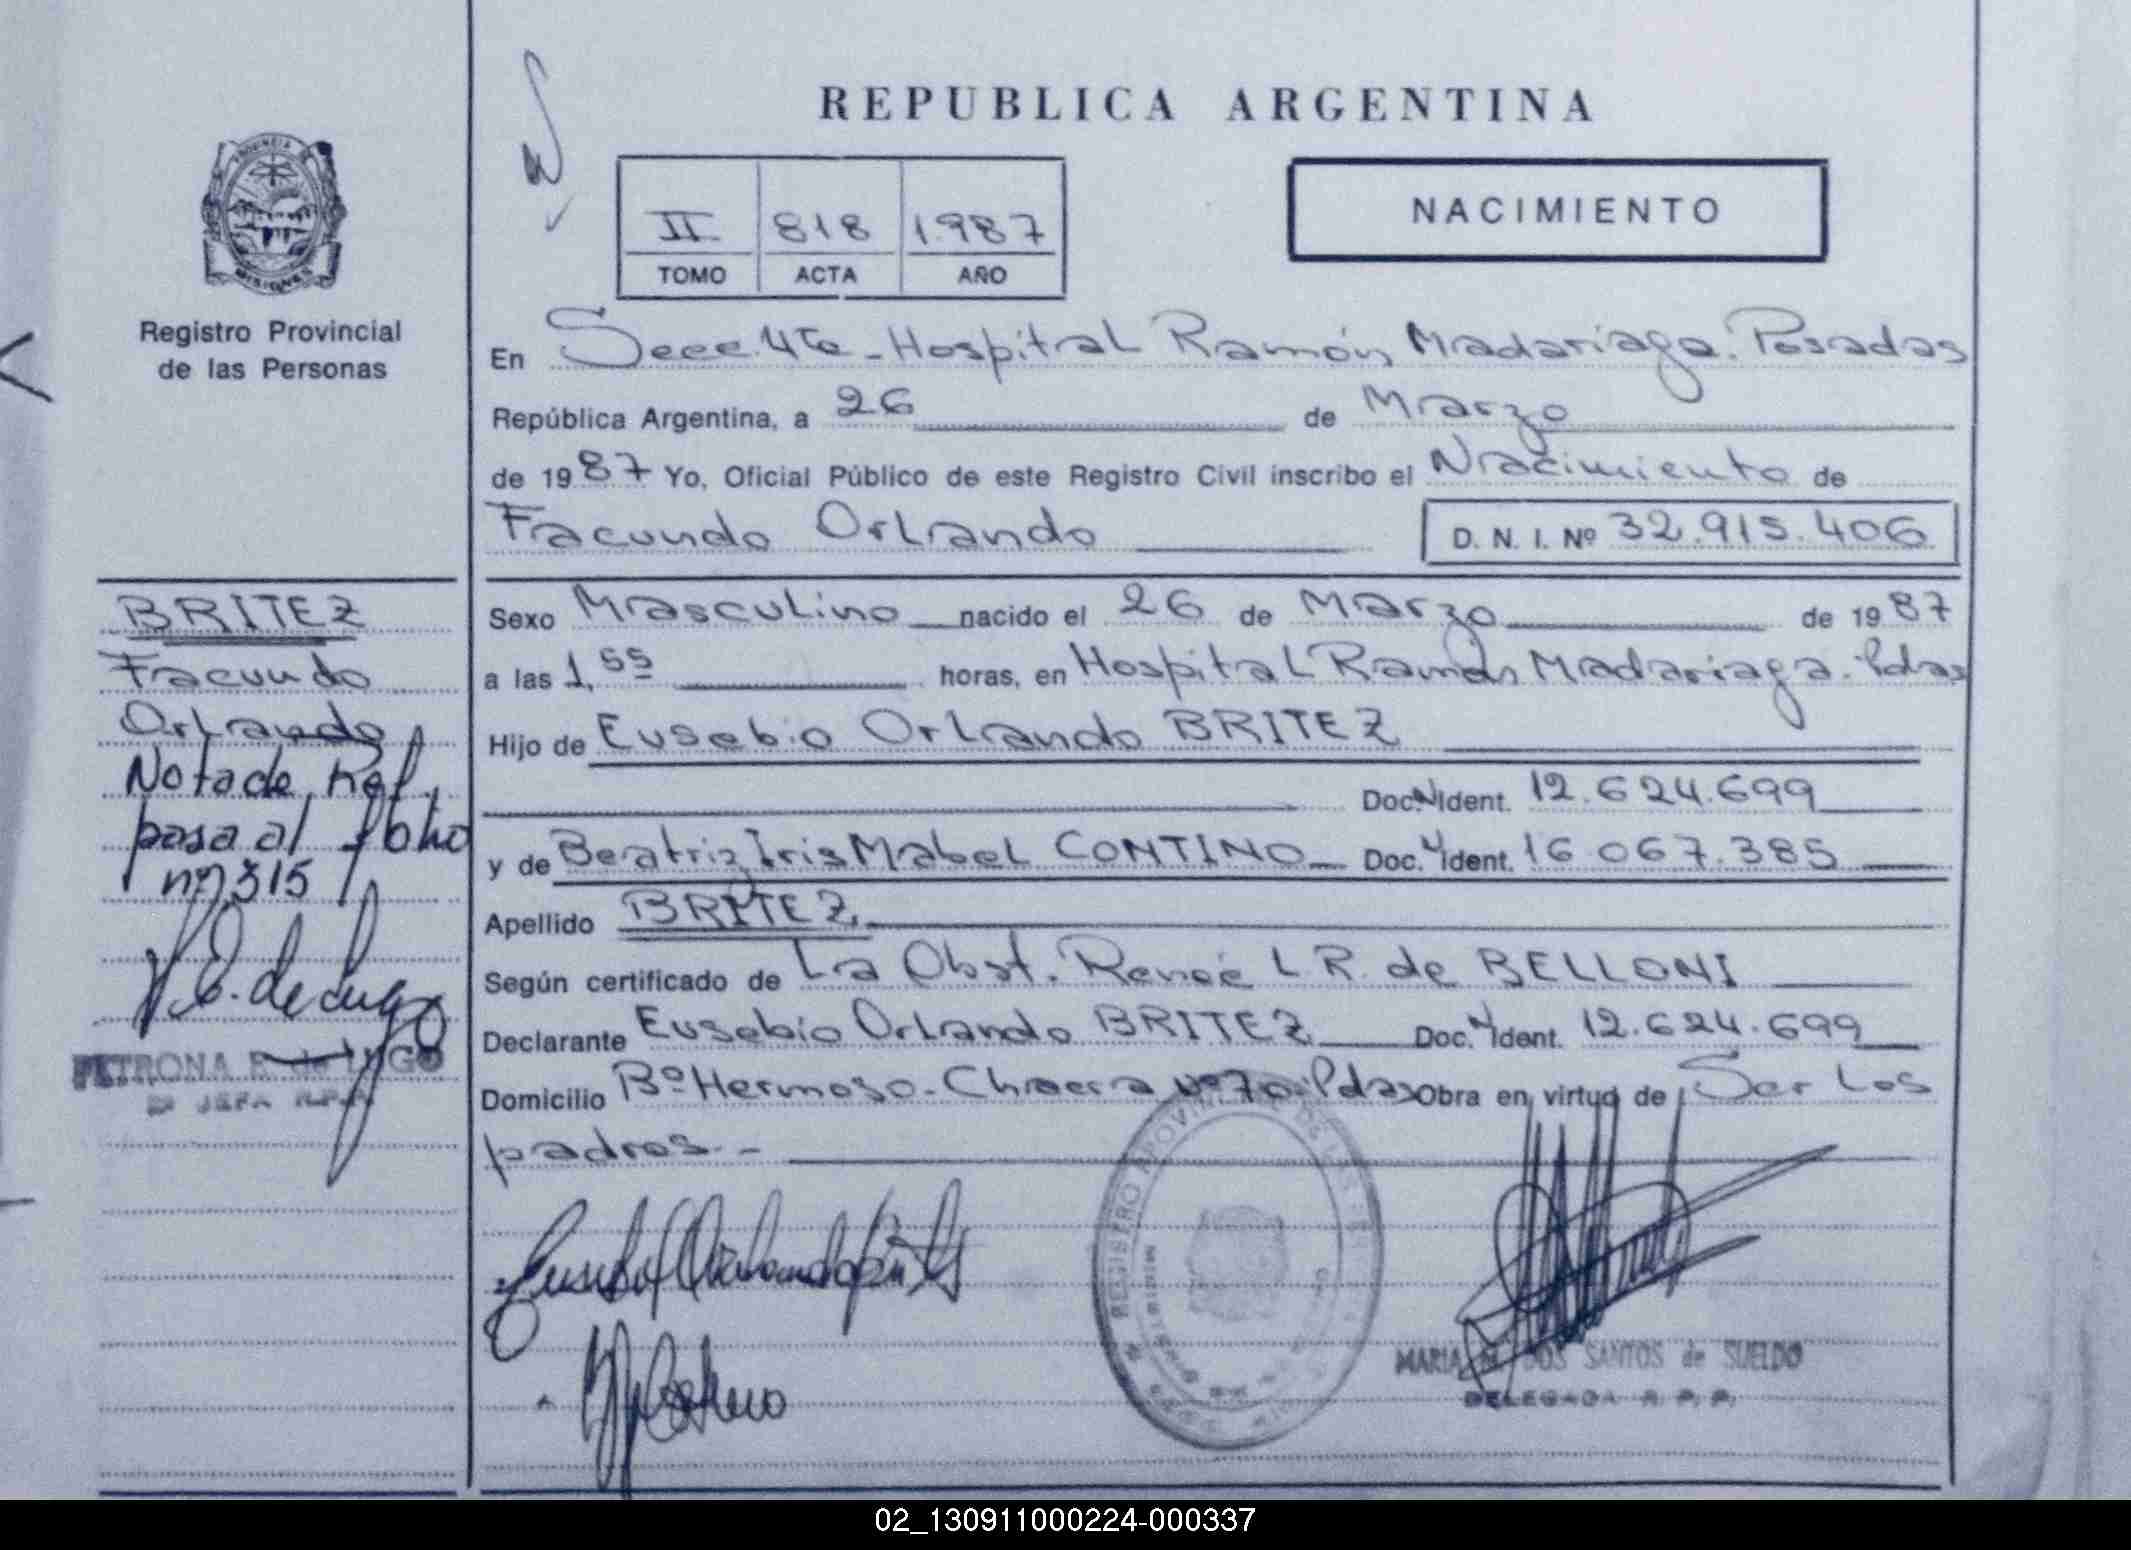 REPUBLICA ARGENTINA
PROVINCIA
MISIONES
Registro Provincial
de las Personas
II 818 1.987
TOMO ACTA AÑO
NACIMIENTO
En Secc. 4ta - Hospital Ramón Madariaga. Posadas
República Argentina, a 26 de Marzo
de 1987 Yo, Oficial Público de este Registro Civil inscribo el Nacimiento de
Facundo Orlando D. N. I. Nº 32.915.406
BRITEZ
Facundo
Orlando
Nota de Ref.
pasa al folio
nº 315
PETRONA E. de LUGO
Sexo Masculino nacido el 26 de Marzo de 1987
a las 1,55 horas, en Hospital Ramón Madariaga. Pdas
Hijo de Eusebio Orlando BRITEZ
Doc. N Ident. 12.624.699
y de Beatriz Iris Mabel CONTINO Doc. N Ident. 16.067.385
Apellido BRITEZ.
Según certificado de La Obst. Reneé L. R. de BELLONI
Declarante Eusebio Orlando BRITEZ Doc. N Ident. 12.624.699
Domicilio Bº Hermoso - Chacra Nº 70. Pdas Obra en virtud de Ser Los
padres. -
REGISTRO PROVINCIAL DE LAS PERSONAS
MARIA DOS SANTOS de SUELDO
DELEGADA R. P. P.
02_130911000224-000337